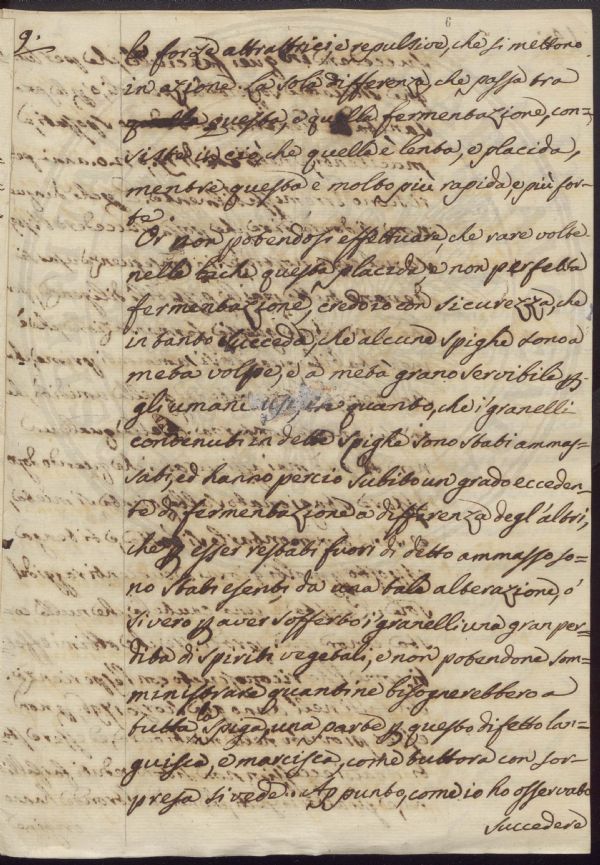 9.
6
le forze attrattrici, e repulsive, che si mettono
in azione. La sola differenza, che passa tra
questa, e quella fermentazione, con-
siste di ciò, che quella è lenta, e placida,
mentre questa è molto più rapida, e più for-
te.
Or non potendosi effettuare, che rare volte
nelle biche questa placida, e non perfetta
fermentazione, credo io con sicurezza, che
intanto succeda, che alcune spighe sono a
metà volpe, e a metà grano servibile p
gli umani usi, in quanto, che i granelli
contenuti in dette spighe sono stati ammas-
sati, ed hanno perciò subito un gradoecceden-
te di fermentazione a differenza degl'altri,
che p esser restati fuori di detto ammasso so-
no stati esenti da una tale alterazione, ó
sivero p aver sofferto i granelli una gran per-
dita di spiriti vegetali, e non potendone som-
ministrare quanti ne bisognerebbero a
tutta la spiga, una parte p questo difetto lan-
guisca, e marcisca, come tuttora con sor-
presa si vede. Appunto, come io ho osservato
succedere